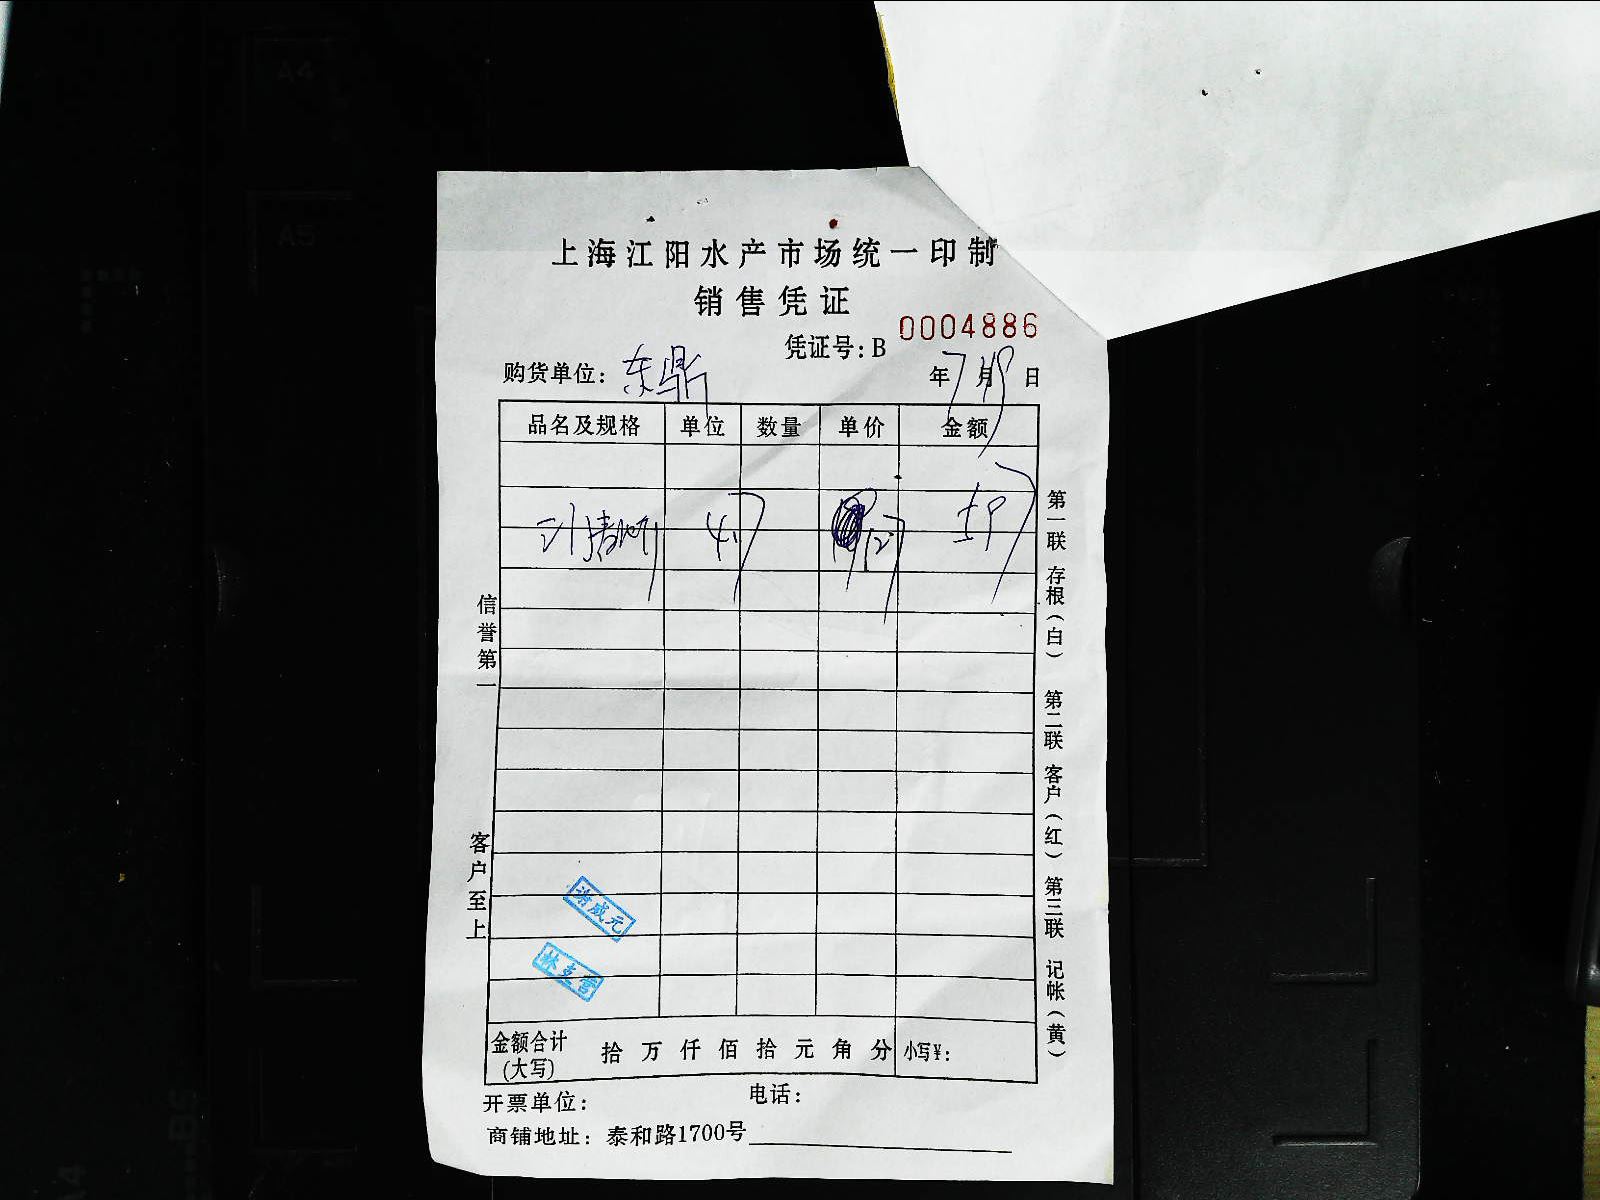 上海江阳水产市场统一印制
销售凭证
凭证号：B 0004886
购货单位：东鼎
年 7 月 19 日
品名及规格 单位 数量 单价 金额
信誉第一
客户至上
第一联 存根（白） 第二联 客户（红） 第三联 记帐（黄）
谢成元
金额合计（大写） 拾 万 仟 佰 拾 元 角 分 小写¥：
开票单位： 电话：
商铺地址：泰和路1700号
A4
A5
B5
A4